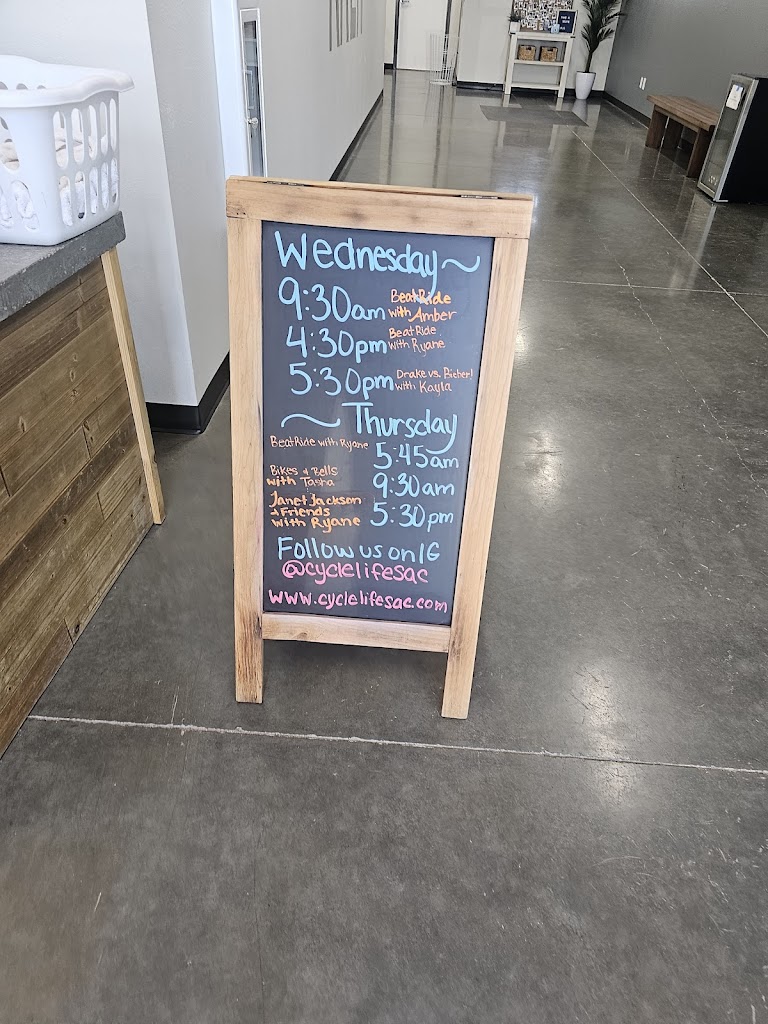 Wednesday~
9:30am BeatRide with Amber
4:30pm BeatRide with Ryane
5:30pm Drake vs. Bieber! with Kayla
~ Thursday
BeatRide with Ryane 5:45am
Bikes & Bells with Tasha 9:30am
Janet Jackson & Friends with Ryane 5:30pm
Follow us on IG
@cyclelifesac
www.cyclelifesac.com